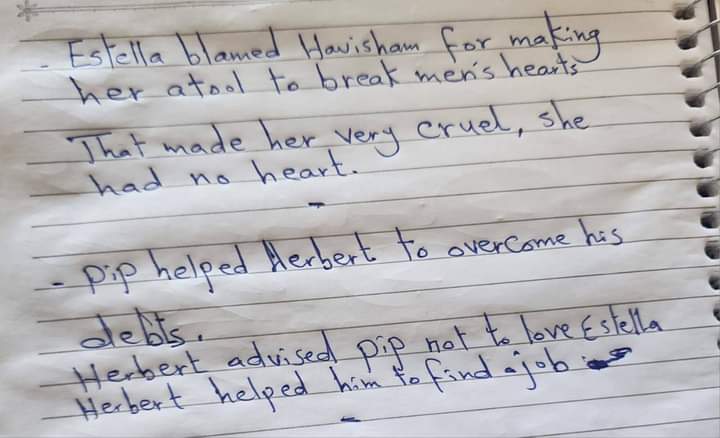 - Estella blamed Havisham for making
her atool to break men's hearts
That made her very cruel, she
had no heart.
- pip helped Herbert to overcome his
debts.
Herbert advised pip not to love Estella
Herbert helped him to find a job